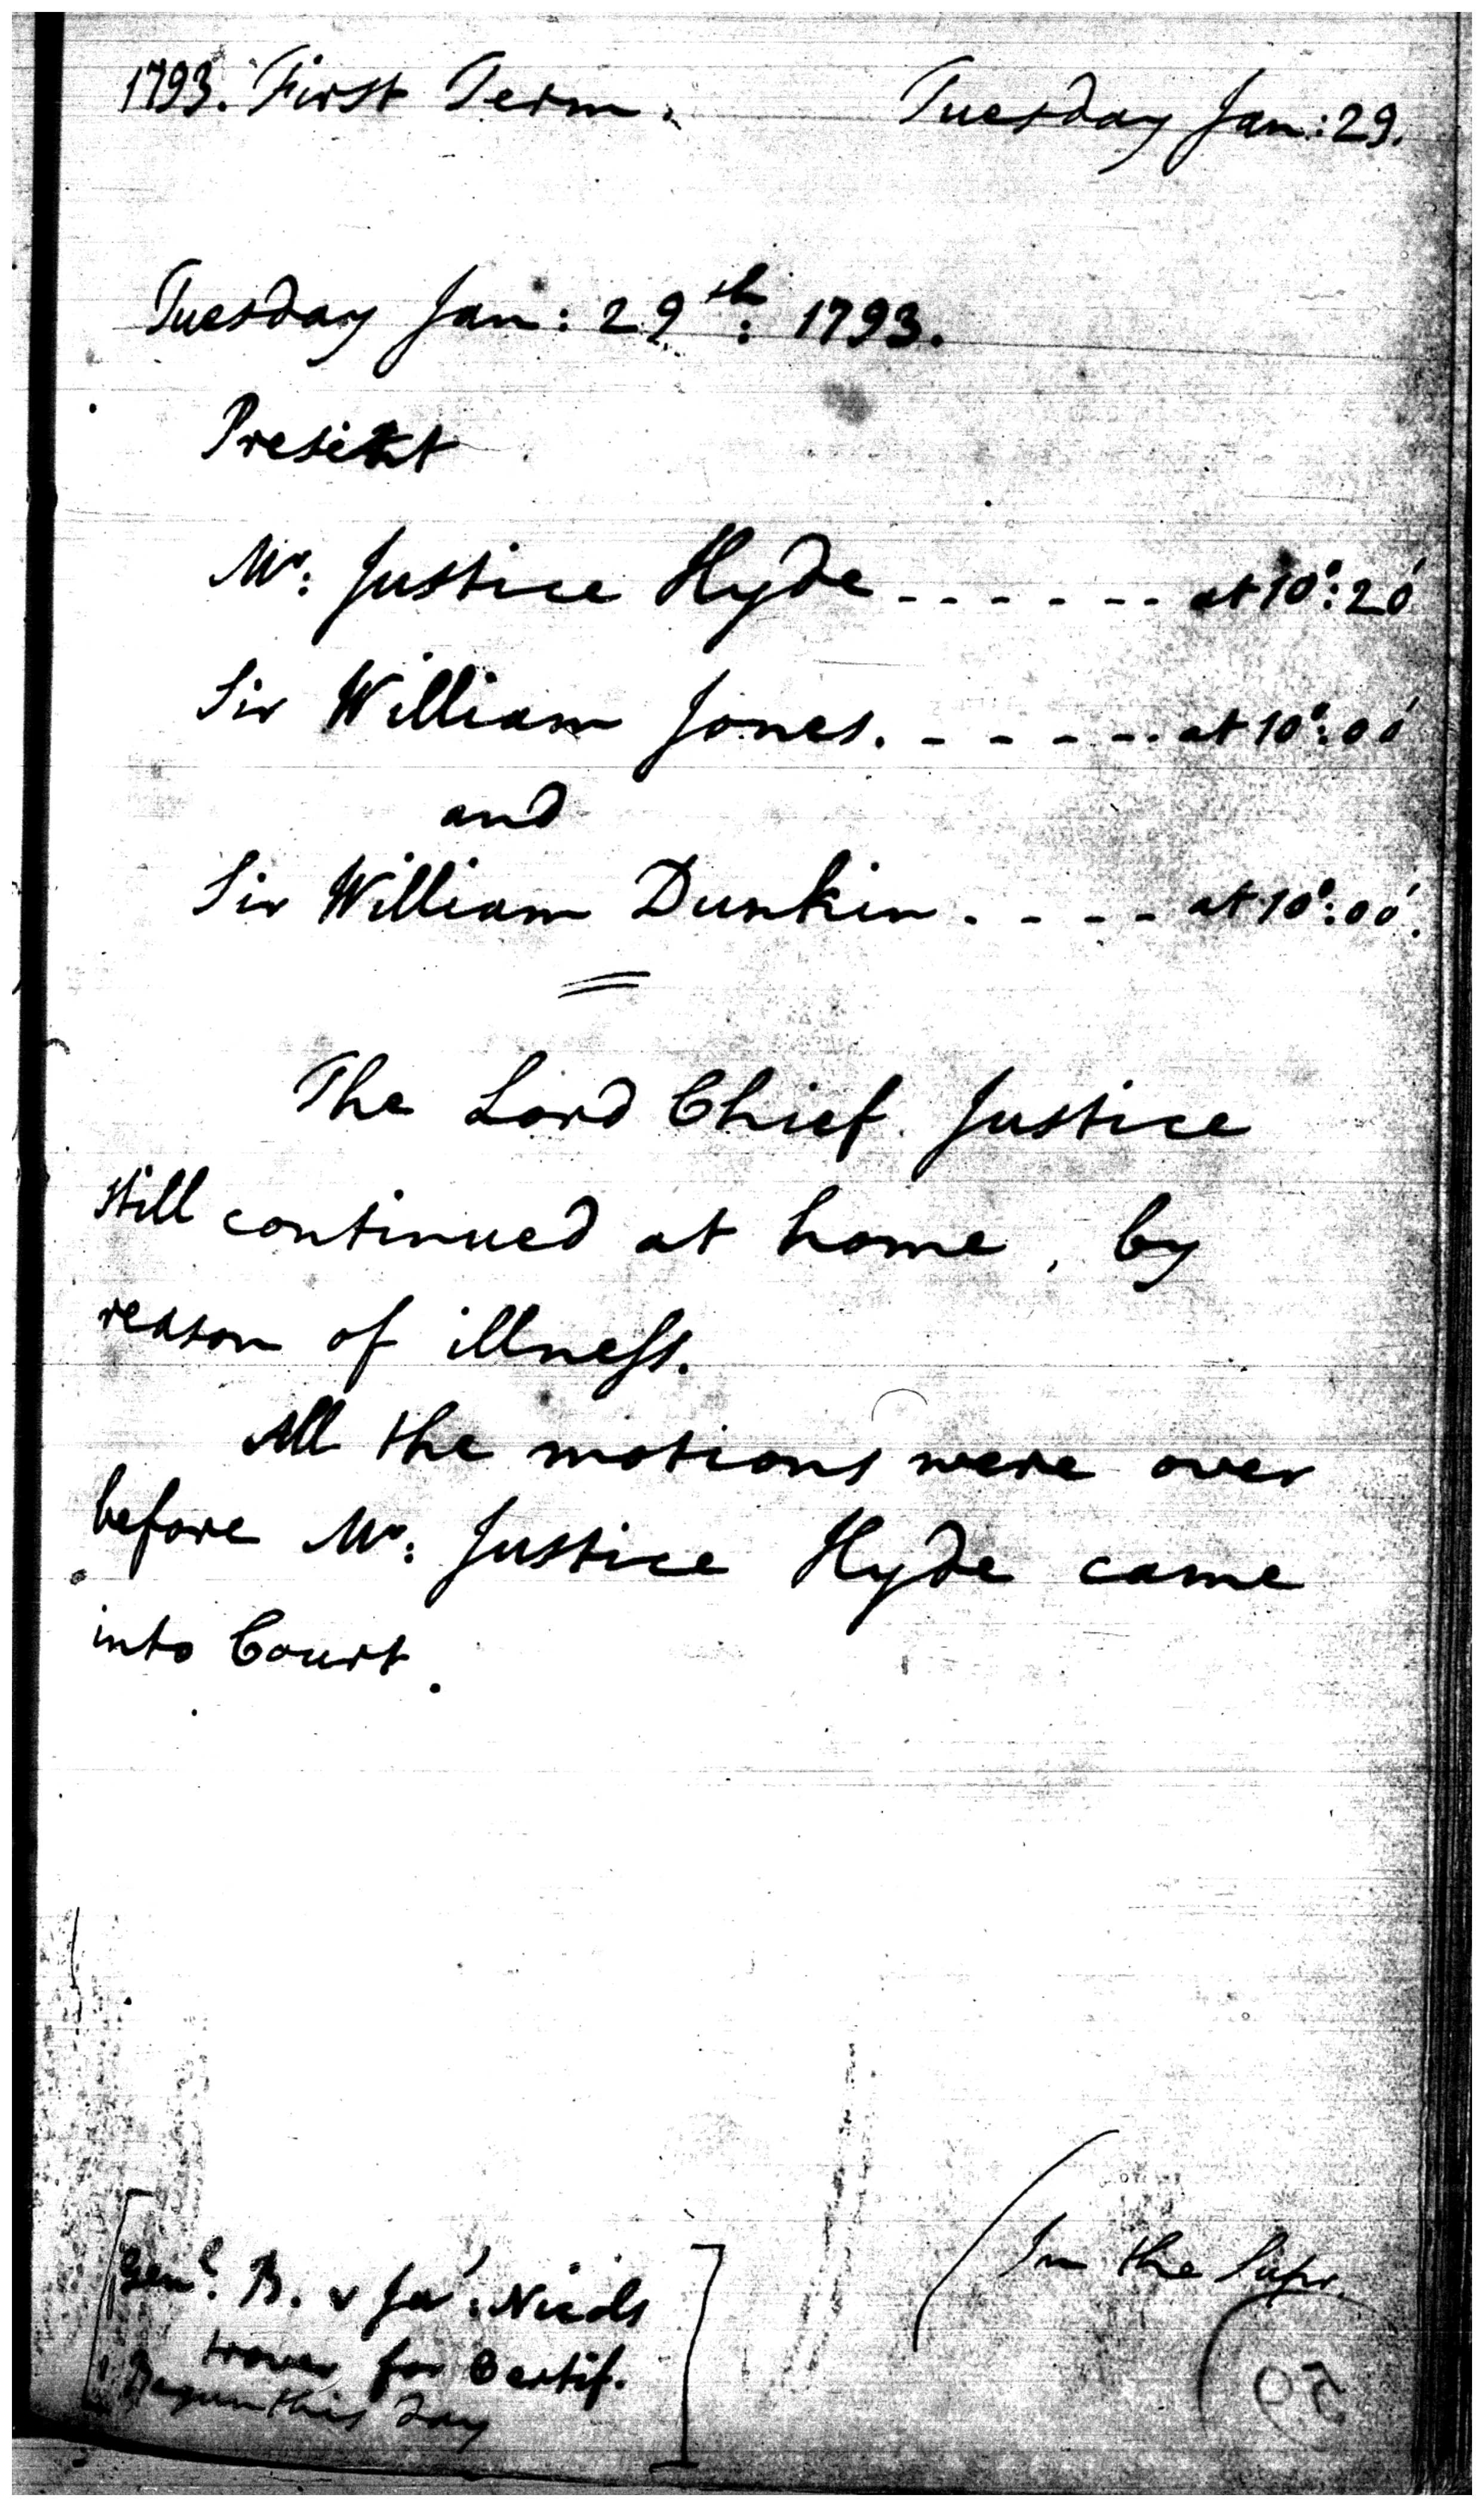 1793. First Term. Tuesday Jan: 29.
Tuesday Jan: 29th: 1793.
Present
Mr: Justice Hyde - - - - - - at 10°: 20'
Sir William Jones. - - - - - at 10°: 00'
and
Sir William Dunkin. - - - - at 10°: 00'.
The Lord Chief Justice
still continued at home, by
reason of illness.
All the motions were over
before Mr: Justice Hyde came
into Court.
(In the Supr.
[Genl. B. v Jas. Nicols
trover for Certif.
Begun this day]